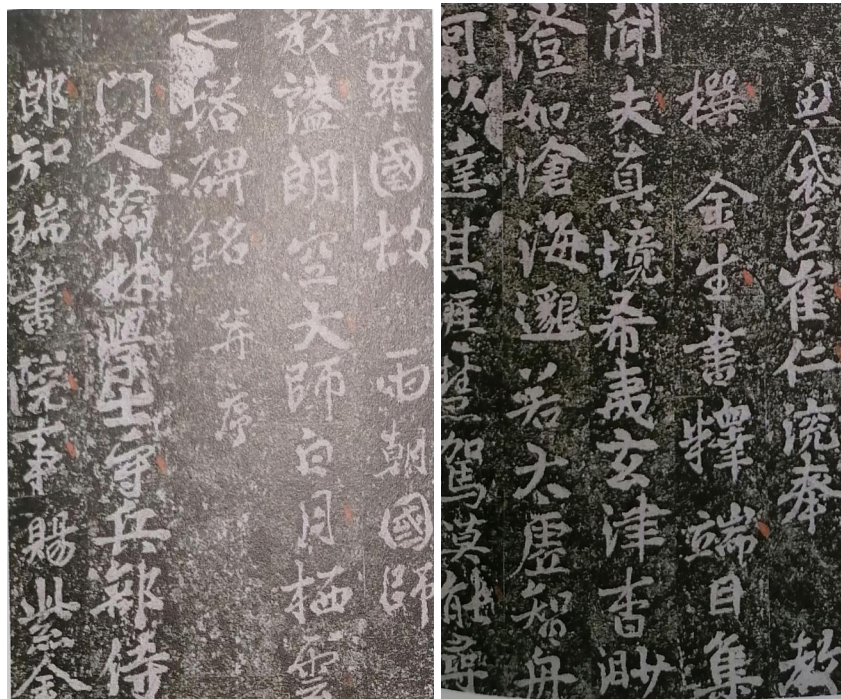 新羅國故 兩朝國師
教諡朗空大師白月栖雲
之塔碑銘 并序
門人翰林學士守兵部侍
郎知瑞書院事賜紫金
魚袋臣崔仁渷奉 教
撰 金生書釋端目集
聞夫真境希夷玄津杳渺
澄如滄海邈若太虛智舟
何以達其涯慧駕莫能尋